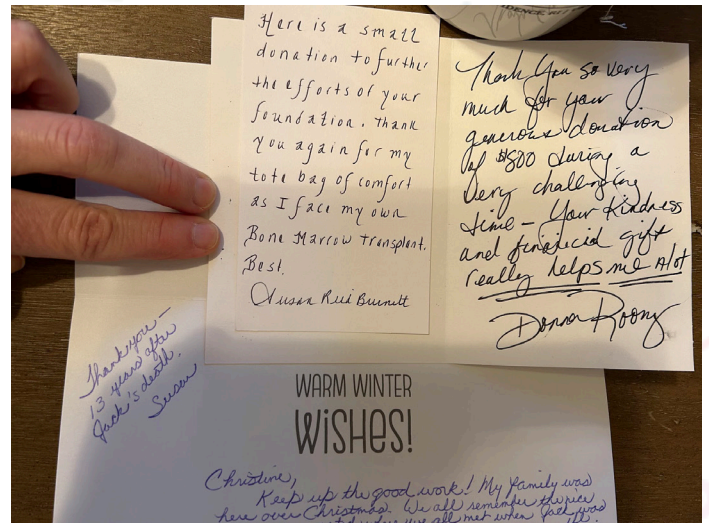 Here is a small
donation to further
the efforts of your
foundation. Thank
you again for my
tote bag of comfort
as I face my own
Bone Marrow Transplant.
Best,
Susan Reid Burnett
Thank You so very
much for your
generous donation
of $800 during a
very challenging
time - Your Kindness
and financial gift
really helps me Alot
Donna
Thank you -
13 years after
Jack's death.
Susan
WARM WINTER
WiSHES!
Christine,
Keep up the good work! My family was
here over Christmas. We all remember the nice
we all met when Jack was